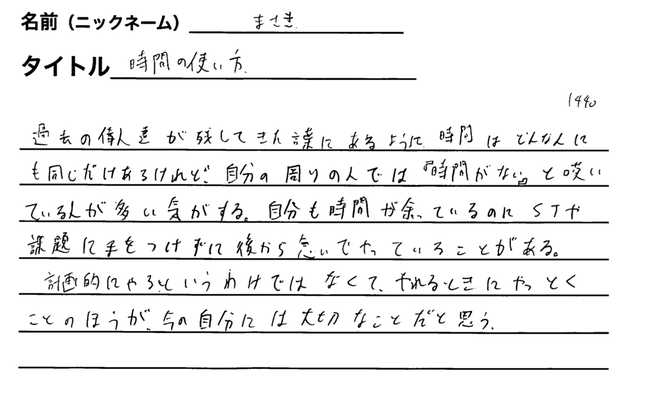 名前（ニックネーム） まさき
タイトル 時間の使い方.
1990
過去の偉人達が残してきた言葉にあるように、時間はどんな人に
も同じだけあるけれど、自分の周りの人では『時間がない』と嘆い
ている人が多い気がする。自分も時間が余っているのにSTや
課題に手をつけずに後から急いでやっていることがある。
計画的にやるというわけではなくて、やれるときにやっとく
ことのほうが、今の自分には大切なことだと思う.